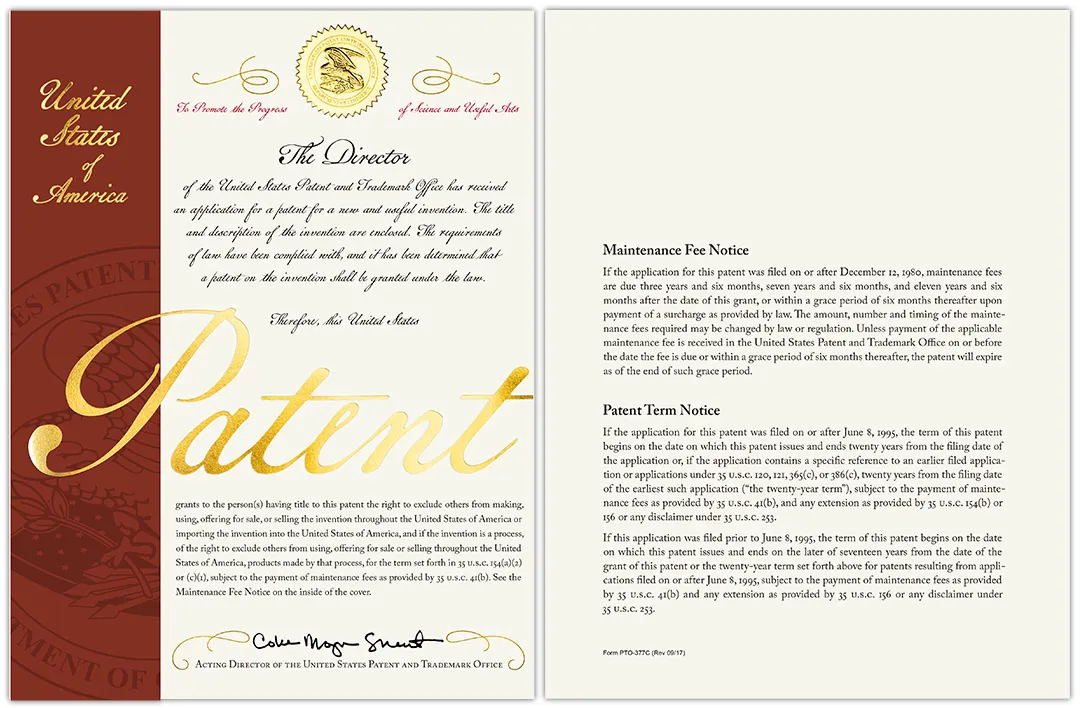 United
States
of
America
To Promote the Progress
of Science and Useful Arts
The Director
of the United States Patent and Trademark Office has received
an application for a patent for a new and useful invention. The title
and description of the invention are enclosed. The requirements
of law have been complied with, and it has been determined that
a patent on the invention shall be granted under the law.
Therefore, this United States
Patent
grants to the person(s) having title to this patent the right to exclude others from making,
using, offering for sale, or selling the invention throughout the United States of America or
importing the invention into the United States of America, and if the invention is a process,
of the right to exclude others from using, offering for sale or selling throughout the United
States of America, products made by that process, for the term set forth in 35 U.S.C. 154(a)(2)
or (c)(1), subject to the payment of maintenance fees as provided by 35 U.S.C. 41(b). See the
Maintenance Fee Notice on the inside of the cover.
ACTING DIRECTOR OF THE UNITED STATES PATENT AND TRADEMARK OFFICE
ES PATENT
TMENT OF
Maintenance Fee Notice
If the application for this patent was filed on or after December 12, 1980, maintenance fees
are due three years and six months, seven years and six months, and eleven years and six
months after the date of this grant, or within a grace period of six months thereafter upon
payment of a surcharge as provided by law. The amount, number and timing of the mainte-
nance fees required may be changed by law or regulation. Unless payment of the applicable
maintenance fee is received in the United States Patent and Trademark Office on or before
the date the fee is due or within a grace period of six months thereafter, the patent will expire
as of the end of such grace period.
Patent Term Notice
If the application for this patent was filed on or after June 8, 1995, the term of this patent
begins on the date on which this patent issues and ends twenty years from the filing date of
the application or, if the application contains a specific reference to an earlier filed applica-
tion or applications under 35 U.S.C. 120, 121, 365(c), or 386(c), twenty years from the filing date
of the earliest such application (“the twenty-year term”), subject to the payment of mainte-
nance fees as provided by 35 U.S.C. 41(b), and any extension as provided by 35 U.S.C. 154(b) or
156 or any disclaimer under 35 U.S.C. 253.
If this application was filed prior to June 8, 1995, the term of this patent begins on the date
on which this patent issues and ends on the later of seventeen years from the date of the
grant of this patent or the twenty-year term set forth above for patents resulting from appli-
cations filed on or after June 8, 1995, subject to the payment of maintenance fees as provided
by 35 U.S.C. 41(b) and any extension as provided by 35 U.S.C. 156 or any disclaimer under
35 U.S.C. 253.
Form PTO-377C (Rev 09/17)